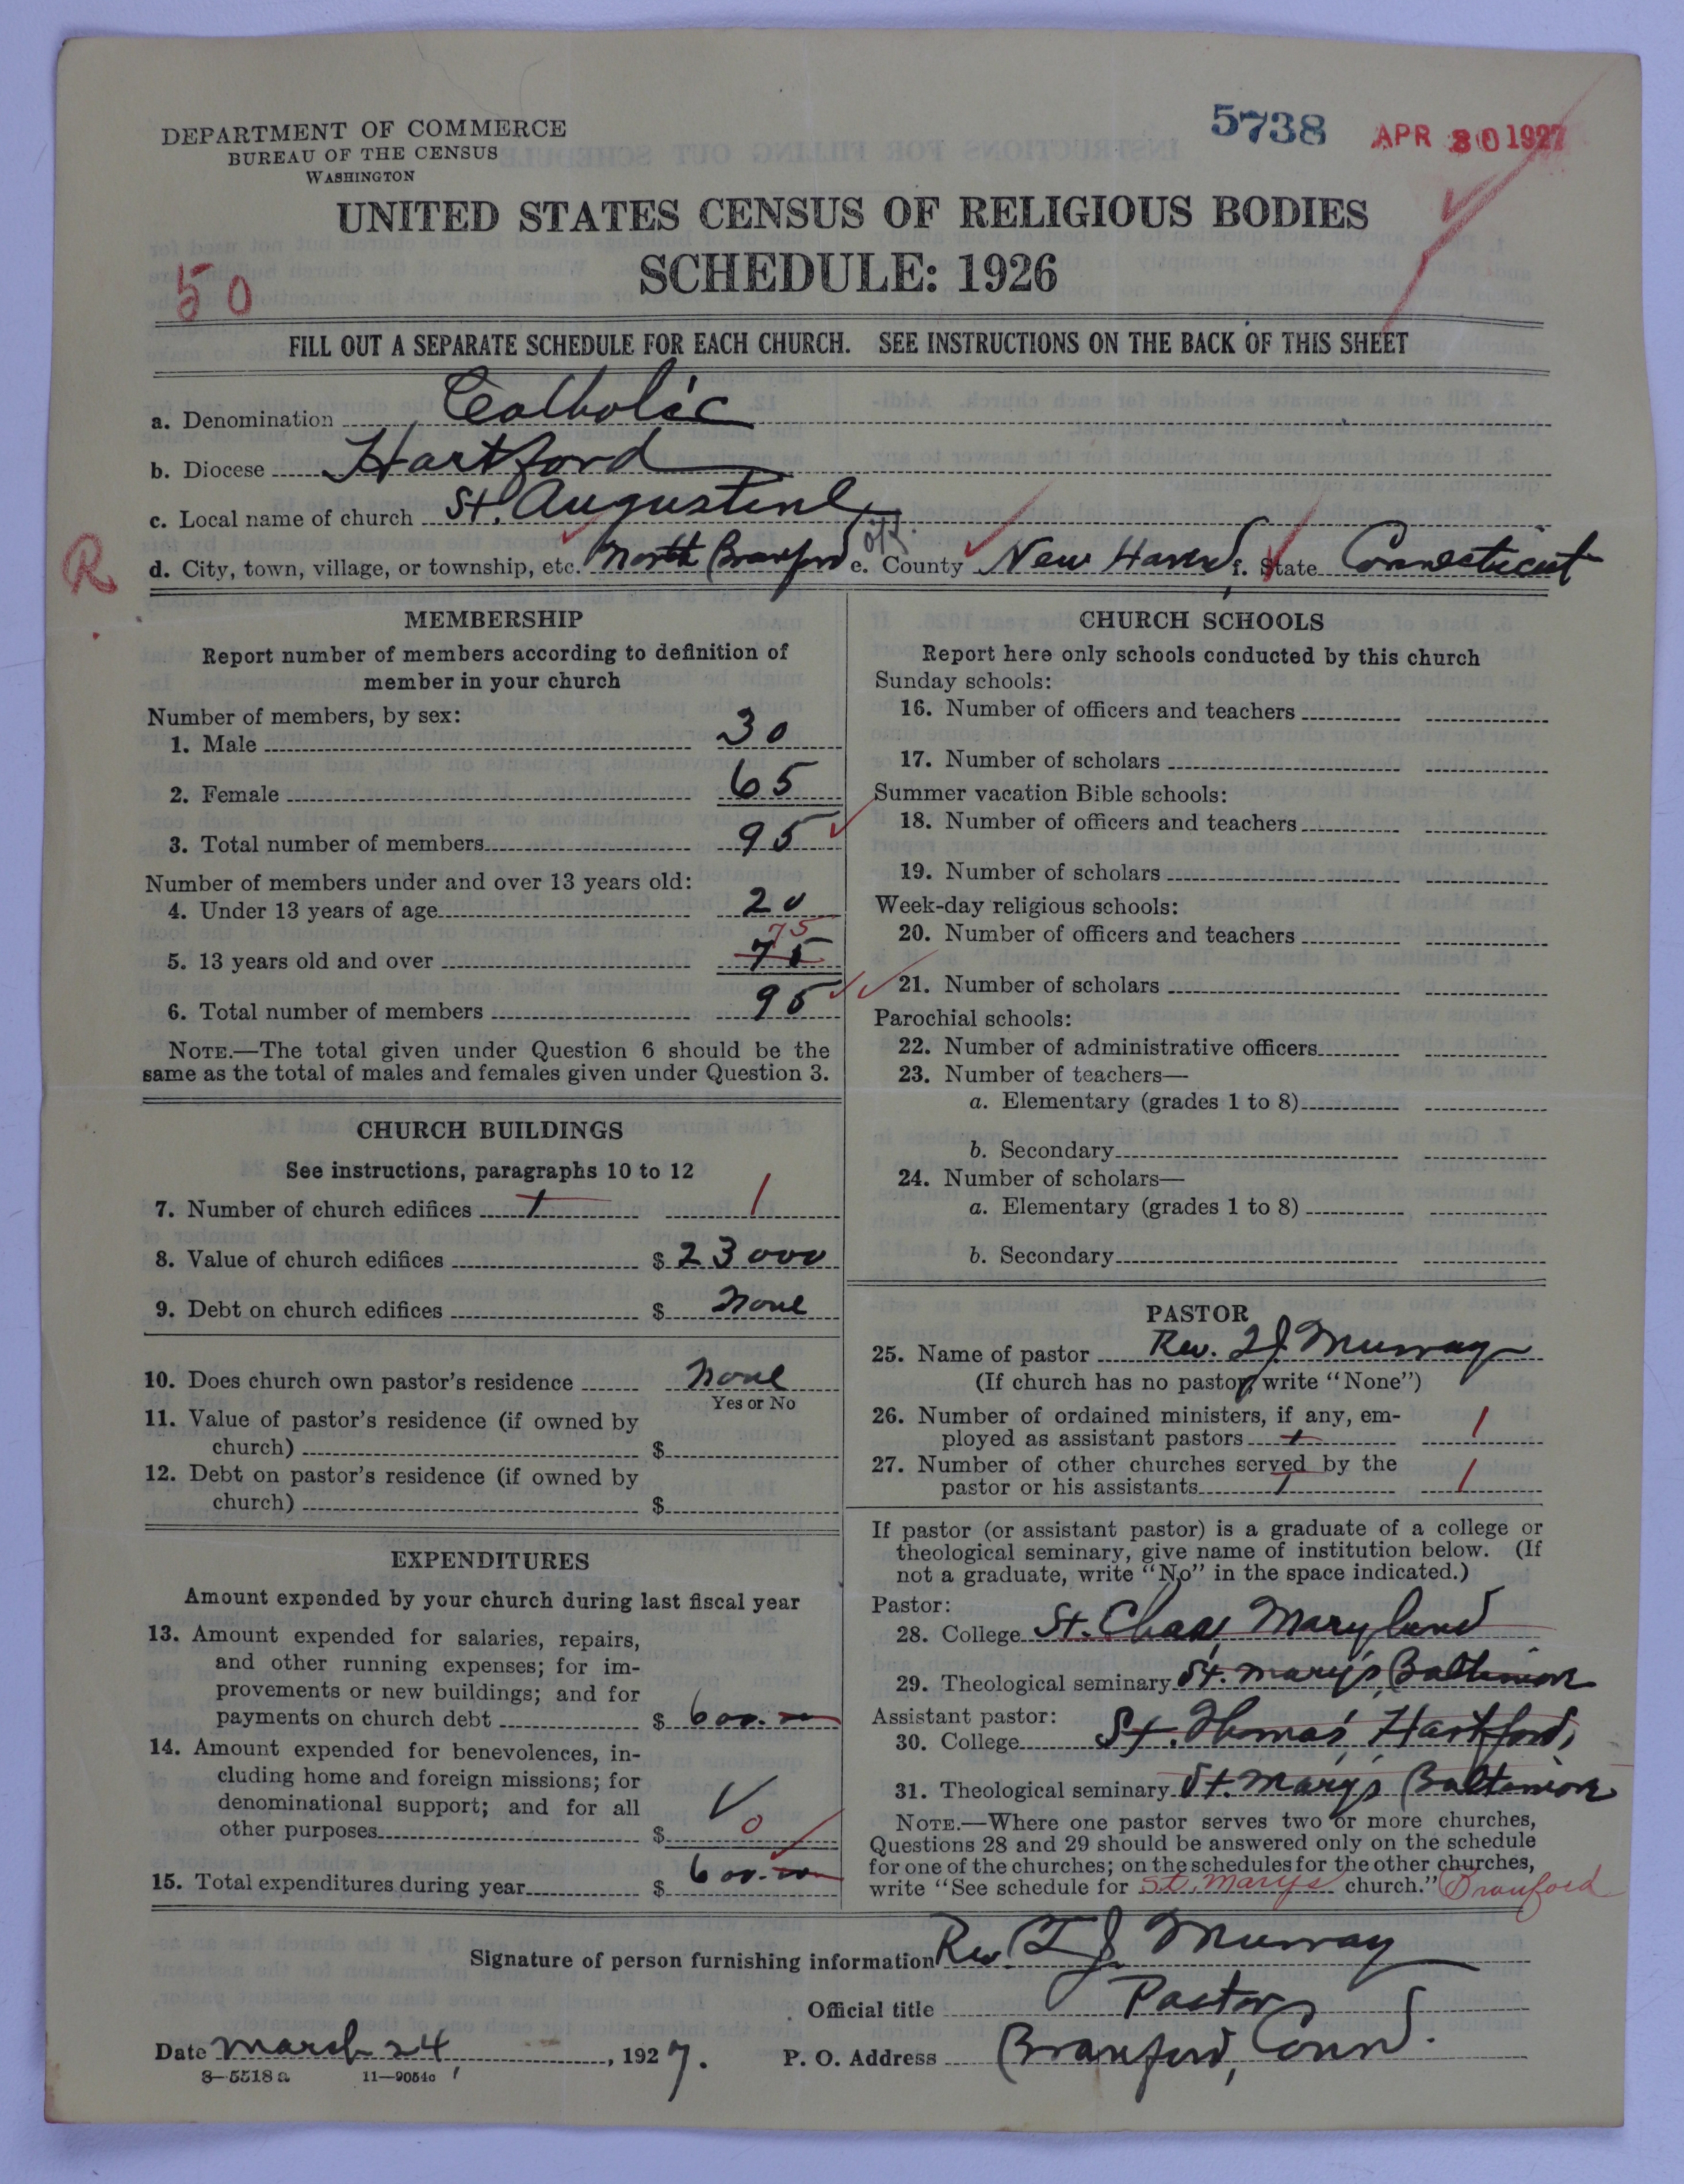 5738 APR 30 1927
DEPARTMENT OF COMMERCE
BUREAU OF THE CENSUS
WASHINGTON
UNITED STATES CENSUS OF RELIGIOUS BODIES
SCHEDULE: 1926
50
FILL OUT A SEPARATE SCHEDULE FOR EACH CHURCH. SEE INSTRUCTIONS ON THE BACK OF THIS SHEET
a. Denomination Catholic
b. Diocese Hartford
c. Local name of church St. Augustine
R d. City, town, village, or township, etc. North Branford e. County New Haven f. State Connecticut
MEMBERSHIP
Report number of members according to definition of
member in your church
Number of members, by sex:
1. Male 30
2. Female 65
3. Total number of members 95
Number of members under and over 13 years old:
4. Under 13 years of age 20
75
5. 13 years old and over 75
6. Total number of members 95
NOTE.—The total given under Question 6 should be the
same as the total of males and females given under Question 3.
CHURCH BUILDINGS
See instructions, paragraphs 10 to 12
7. Number of church edifices 1 1
8. Value of church edifices $ 23000
9. Debt on church edifices $ None
10. Does church own pastor's residence None
Yes or No
11. Value of pastor's residence (if owned by
church) $
12. Debt on pastor's residence (if owned by
church) $
EXPENDITURES
Amount expended by your church during last fiscal year
13. Amount expended for salaries, repairs,
and other running expenses; for im-
provements or new buildings; and for
payments on church debt $ 600.00
14. Amount expended for benevolences, in-
cluding home and foreign missions; for
denominational support; and for all
other purposes $ 0
15. Total expenditures during year $ 600.00
CHURCH SCHOOLS
Report here only schools conducted by this church
Sunday schools:
16. Number of officers and teachers
17. Number of scholars
Summer vacation Bible schools:
18. Number of officers and teachers
19. Number of scholars
Week-day religious schools:
20. Number of officers and teachers
21. Number of scholars
Parochial schools:
22. Number of administrative officers
23. Number of teachers—
a. Elementary (grades 1 to 8)
b. Secondary
24. Number of scholars—
a. Elementary (grades 1 to 8)
b. Secondary
PASTOR
25. Name of pastor Rev. T.J. Murray
(If church has no pastor, write "None")
26. Number of ordained ministers, if any, em-
ployed as assistant pastors 1 1
27. Number of other churches served by the
pastor or his assistants 1 1
If pastor (or assistant pastor) is a graduate of a college or
theological seminary, give name of institution below. (If
not a graduate, write "No" in the space indicated.)
Pastor:
28. College St. Chas, Maryland
29. Theological seminary St. Mary's, Baltimore
Assistant pastor:
30. College St. Thomas, Hartford,
31. Theological seminary St. Mary's Baltimore
NOTE.—Where one pastor serves two or more churches,
Questions 28 and 29 should be answered only on the schedule
for one of the churches; on the schedules for the other churches,
write "See schedule for St. Marys church." Branford
Signature of person furnishing information Rev. T J Murray
Official title Pastor
Date March 24, 1927. P. O. Address Branford, Conn.
8—5518 a 11—9054c